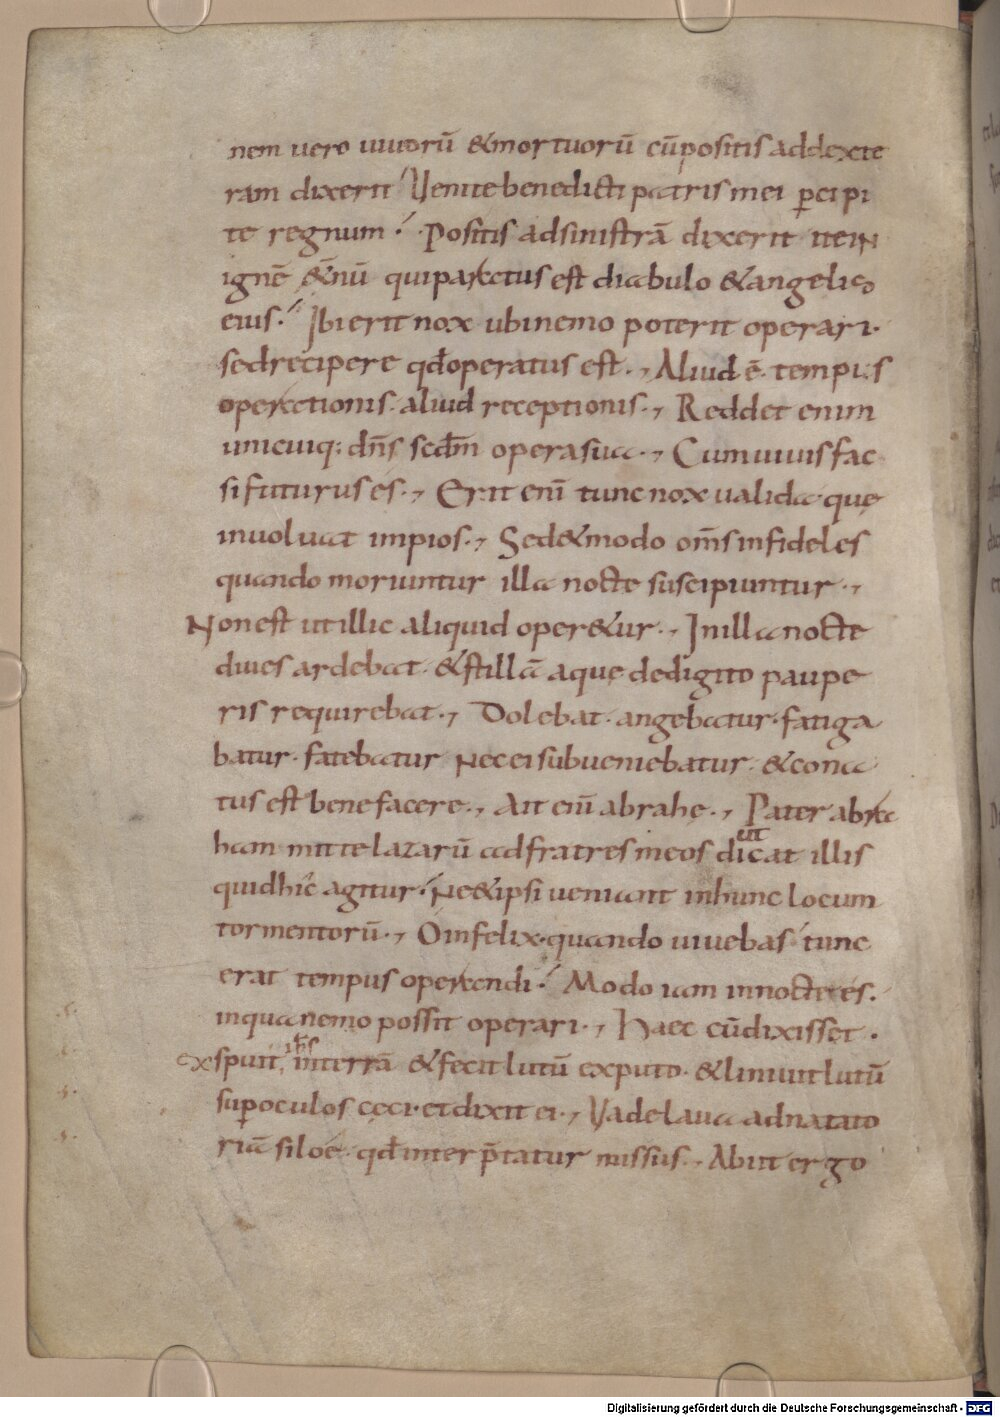 nem uero uiuorū &mortuorū cū positis addexte
ram dixerit Uenite benedicti patris mei p̄cipi
te regnum. Positis adsinistrā dixerit ite in
ignē &̄nū qui paratus est diabulo & angelis
eius. Ibi erit nox ubi nemo poterit operari.
sed recipere qđ operatus est., Aliud ē. tempus
operationis. aliud receptionis., Reddet enim
unicuiq; dn̄s scđm opera sua., Cum uiuis fac
si futurus es., Erit enī tunc nox ualida. que
inuoluat impios., Sed & modo om̄s infideles
quando moriuntur illa nocte suscipiuntur.,
Non est ut illic aliquid oper&ur., In illa nocte
diues ardebat. & stillā aque de digito paupe
ris requirebat., Dolebat. angebatur. fatiga
batur. fatebatur Nec ei subueniebatur. & cona
tus est benefacere., Ait enī abrahę., Pater abra
ham mitte lazarū ad fratres meos ut dicat illis
quid hic agitur. Ne & ipsi ueniant in hunc locum
tormentorū., O infelix. quando uiuebas tunc
erat tempus operandi. Modo iam in nocte es.
in qua nemo possit operari., Haec cū dixisset.
exspuit ih̄s in terrā & fecit lutū ex puto. & liniuit lutū
sup̄ oculos cęci. et dixit ei., Uade laua ad natato
riā siloe. qđ inter p̄tatur missus., Abiit ergo
Digitalisierung gefördert durch die Deutsche Forschungsgemeinschaft - DFG